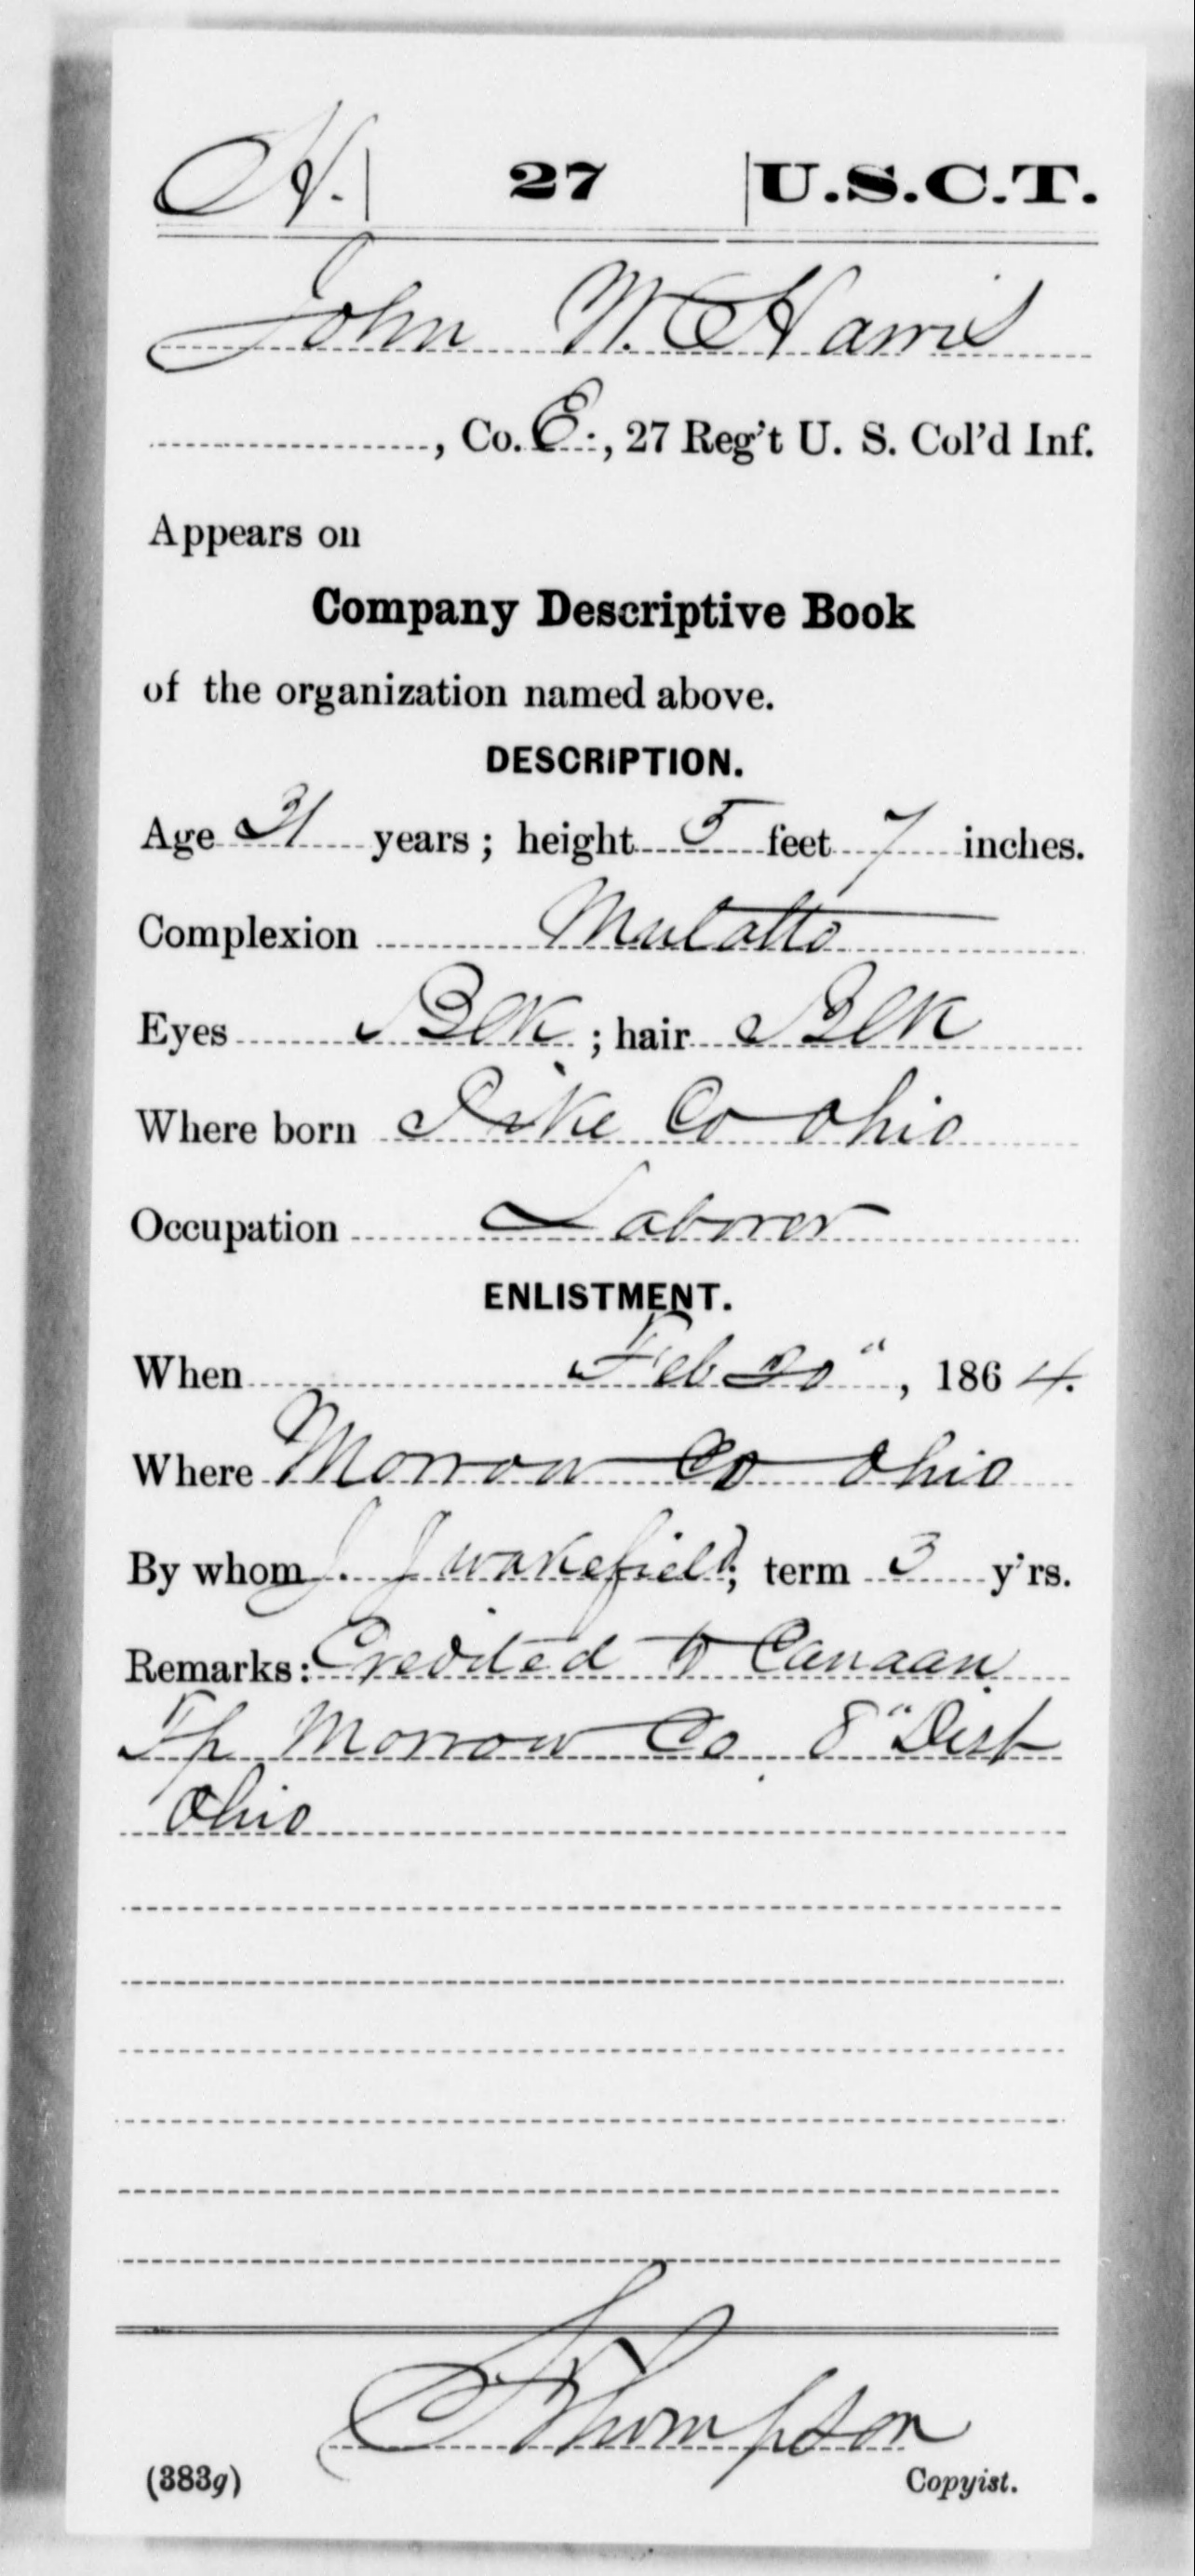 H. | 27 | U.S.C.T.
John W. Harris
, Co. E., 27 Reg't U. S. Col'd Inf.
Appears on
Company Descriptive Book
of the organization named above.
DESCRIPTION.
Age 31 years; height 5 feet 7 inches.
Complexion Mulatto
Eyes Blk; hair Blk
Where born Pike Co Ohio
Occupation Laborer
ENLISTMENT.
When Feb 20", 1864.
Where Morrow Co Ohio
By whom J. J wakefield; term 3 y'rs.
Remarks: Credited to Canaan
Tp Morrow Co 8" Dist
Ohio
Thompson
(383g) Copyist.